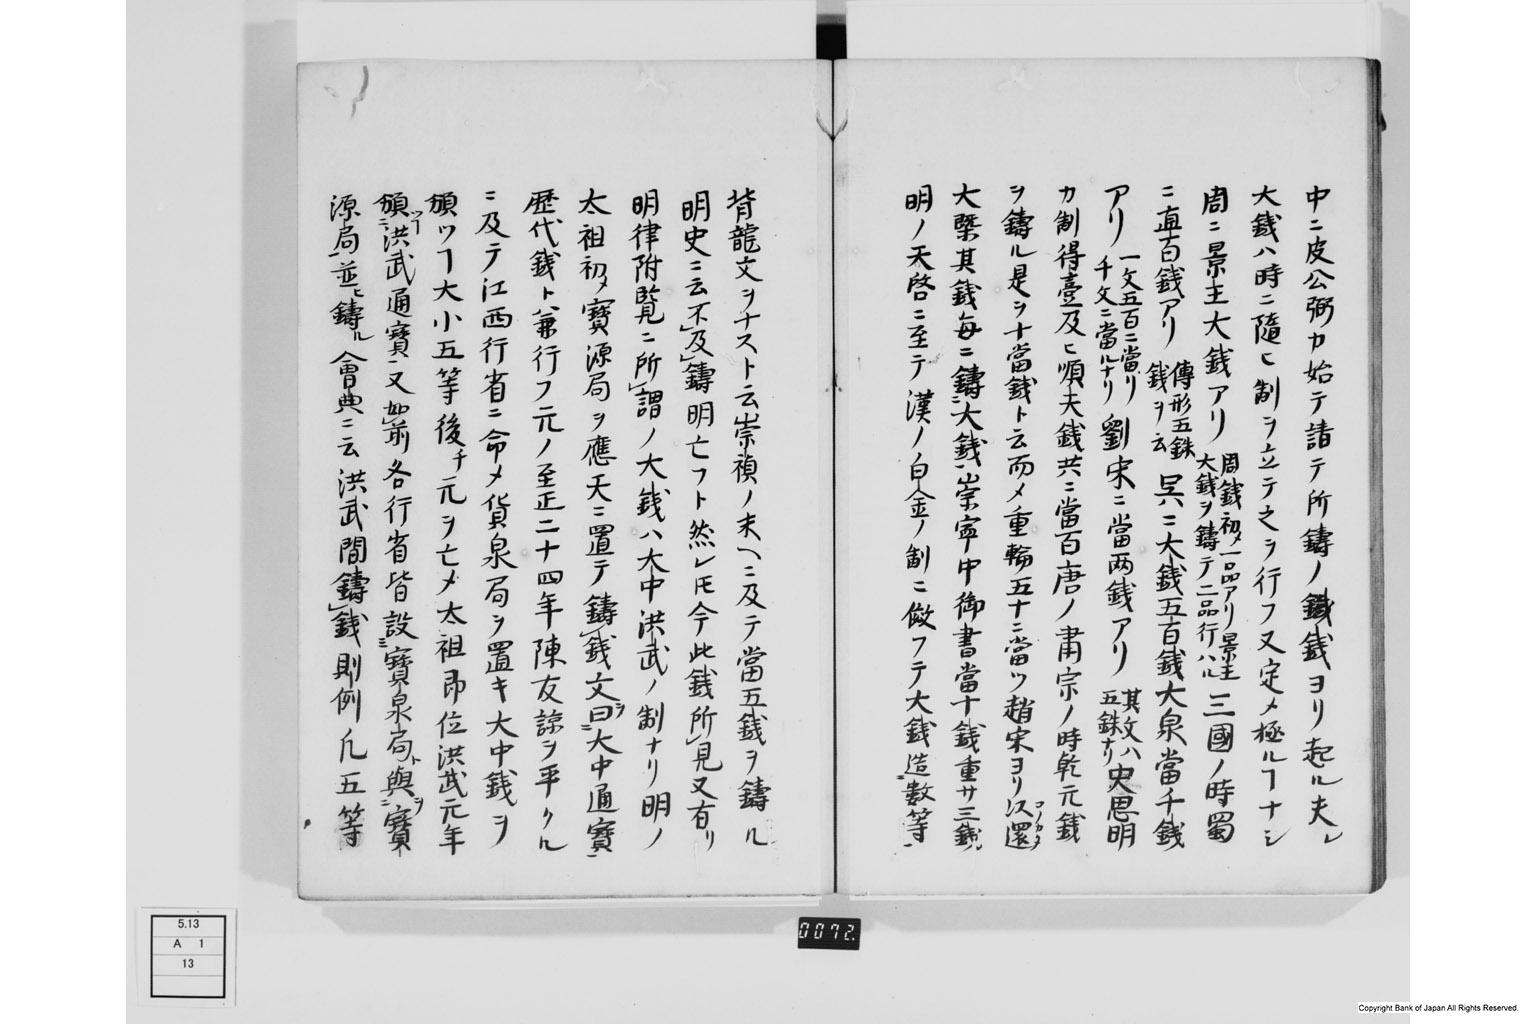 中ニ皮公弼カ始テ請テ所鑄ノ鐵銭ヨリ起ル夫レ
大銭ハ時ニ隨ヒ制ヲ立テ之ヲ行フ又定メ極ルヿナシ
周ニ景王大銭アリ
周銭初メ一品アリ景王
大銭ヲ鑄テ二品行ハル
三國ノ時蜀
ニ直百銭アリ
傳形五銖
銭ヲ云
呉ニ大銭五百銭大泉當千銭
アリ
一文五百ニ當リ
千文ニ當ルナリ
劉宋ニ當兩銭アリ
其文ハ
五銖ナリ
史思明
カ制得臺及ヒ順天銭共ニ當百唐ノ肅宗ノ時乾元銭
ヲ鑄ル是ヲ十當銭ト云而メ重輪五十ニ當ツ趙宋ヨリ以還
コノカタ
大槩其銭毎ニ鑄ニ大銭一崇寧中御書當十銭重サ三銭
明ノ天啓ニ至テ漢ノ白金ノ制ニ倣フテ大銭造ニ數等一
背龍文ヲナスト云崇禎ノ末ヘニ及テ當五銭ヲ鑄ル
明史ニ云不レ及レ鑄明亡フト然レ𪜈今此銭所レ見又有リ
明律附覧ニ所レ謂ノ大銭ハ大中洪武ノ制ナリ明ノ
太祖初メ寶源局ヲ應天ニ置テ鑄レ銭文ヲ曰ニ大中通寶一
歴代銭ト兼行フ元ノ至正二十四年陳友諒ヲ平クル
ニ及テ江西行省ニ命メ貨泉局ヲ置キ大中銭ヲ
頒ツヿ大小五等後チ元ヲ亡メ太祖即位洪武元年
頒ツヿニ洪武通寶一又如レ前各行省皆設ニ寶泉局ト與ヲニ寶
源局一並ヒ鑄ル會典ニ云洪武間鑄レ銭則例凡五等
5.13
A 1
13
0072.
Copyright Bank of Japan All Rights Reserved.